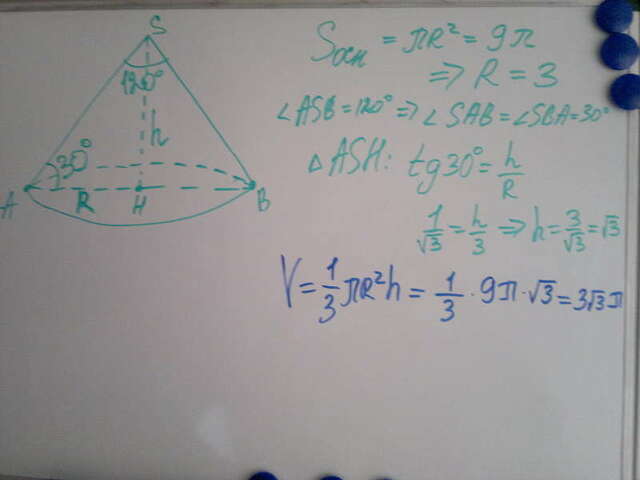 S
120°
h
30°
A
R
H
B
Sосн = πR² = 9π
⇒ R = 3
∠ASB=120° ⇒ ∠SAB=∠SBA=30°
△ASH: tg30° = h/R
1/√3 = h/3 ⇒ h = 3/√3 = √3
V = 1/3 πR²h = 1/3 · 9π · √3 = 3√3 π